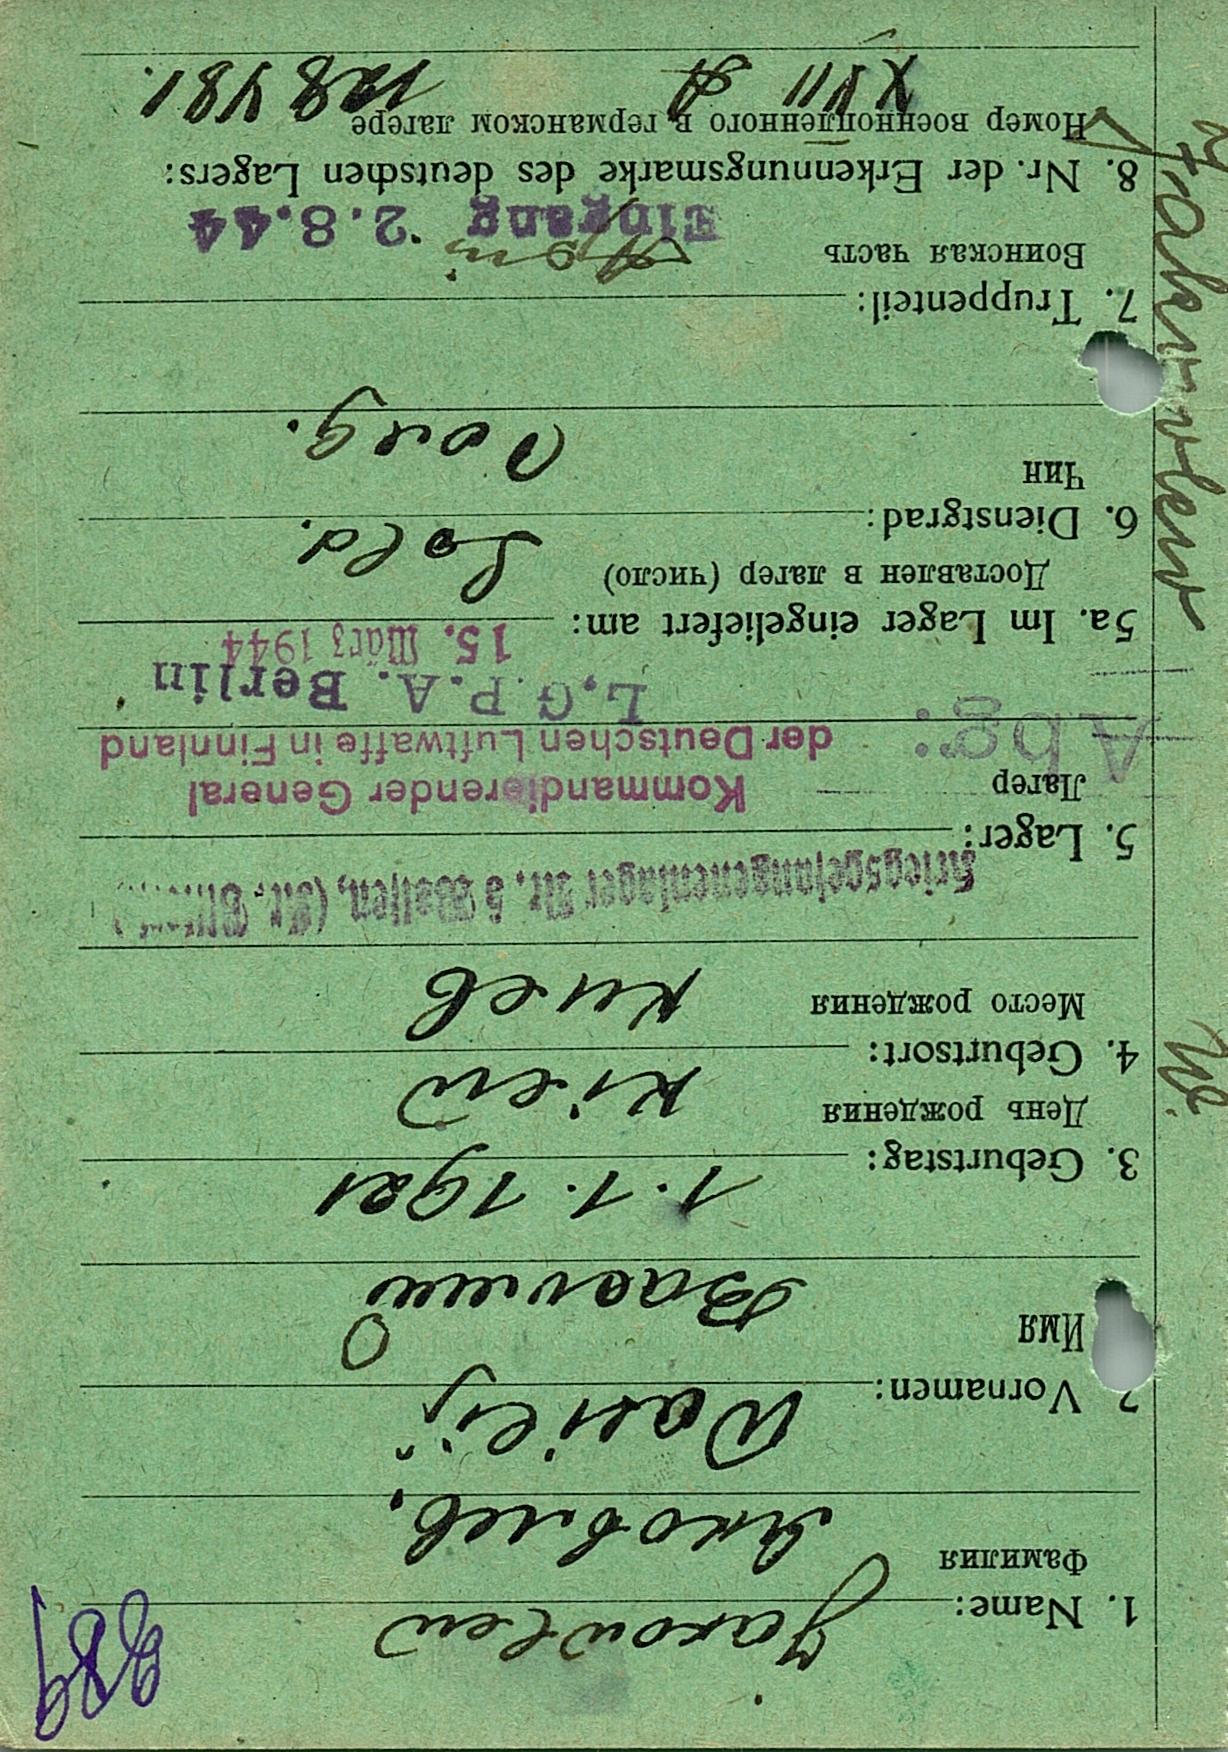 989
1. Name: Jakowlew
Фамилия Яковлев.
2. Vornamen: Wasilij
Имя Василий
3. Geburtstag: 1.1.1921
День рождения
4. Geburtsort: Kiew
Место рождения Киев
Kriegsgefangenenlager Nr. 5 Wolfen, (Kr.
5. Lager:
Лагер
Kommandierender General
der Deutschen Luftwaffe in Finnland
Abg:
L.G.P.A. Berlin
15. März 1944
5a. Im Lager eingeliefert am:
Доставлен в лагер (число)
6. Dienstgrad: Sold.
Чин
7. Truppenteil:
Воинская часть
Eingang 2.8.44
8. Nr. der Erkennungsmarke des deutschen Lagers:
Номер военнопленного в германском лагере
XVII A 128481.
Jakowlew
W.